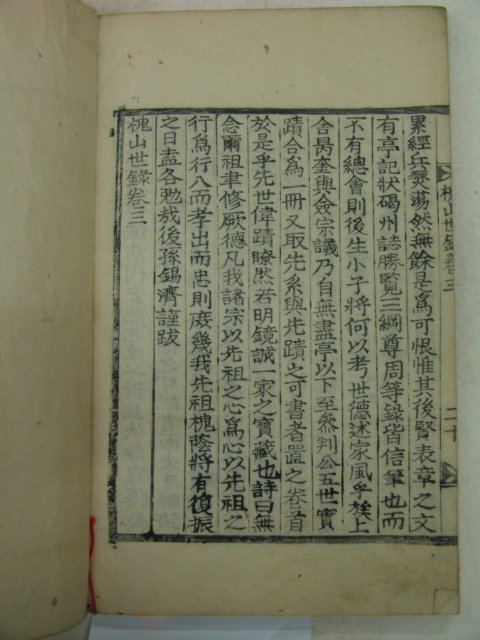 累經兵燹蕩然無餘是爲可恨惟其後賢表章之文
有亭記狀碣州誌勝覽三綱尊周等錄皆信筆也而
不有總會則後生小子將何以考世德述家風乎族上
舍昺奎與僉宗議乃自無盡亭以下至參判公五世實
蹟合爲一冊又取先系與先蹟之可書者置之卷首
於是乎先世偉蹟瞭然若明鏡誠一家之寶藏也詩曰無
念爾祖聿修厥德凡我諸宗以先祖之心爲心以先祖之
行爲行入而孝出而忠則庶幾我先祖槐蔭將有復振
之日盍各勉哉後孫錫濟謹跋
槐山世錄卷三
槐山世錄卷三
二十